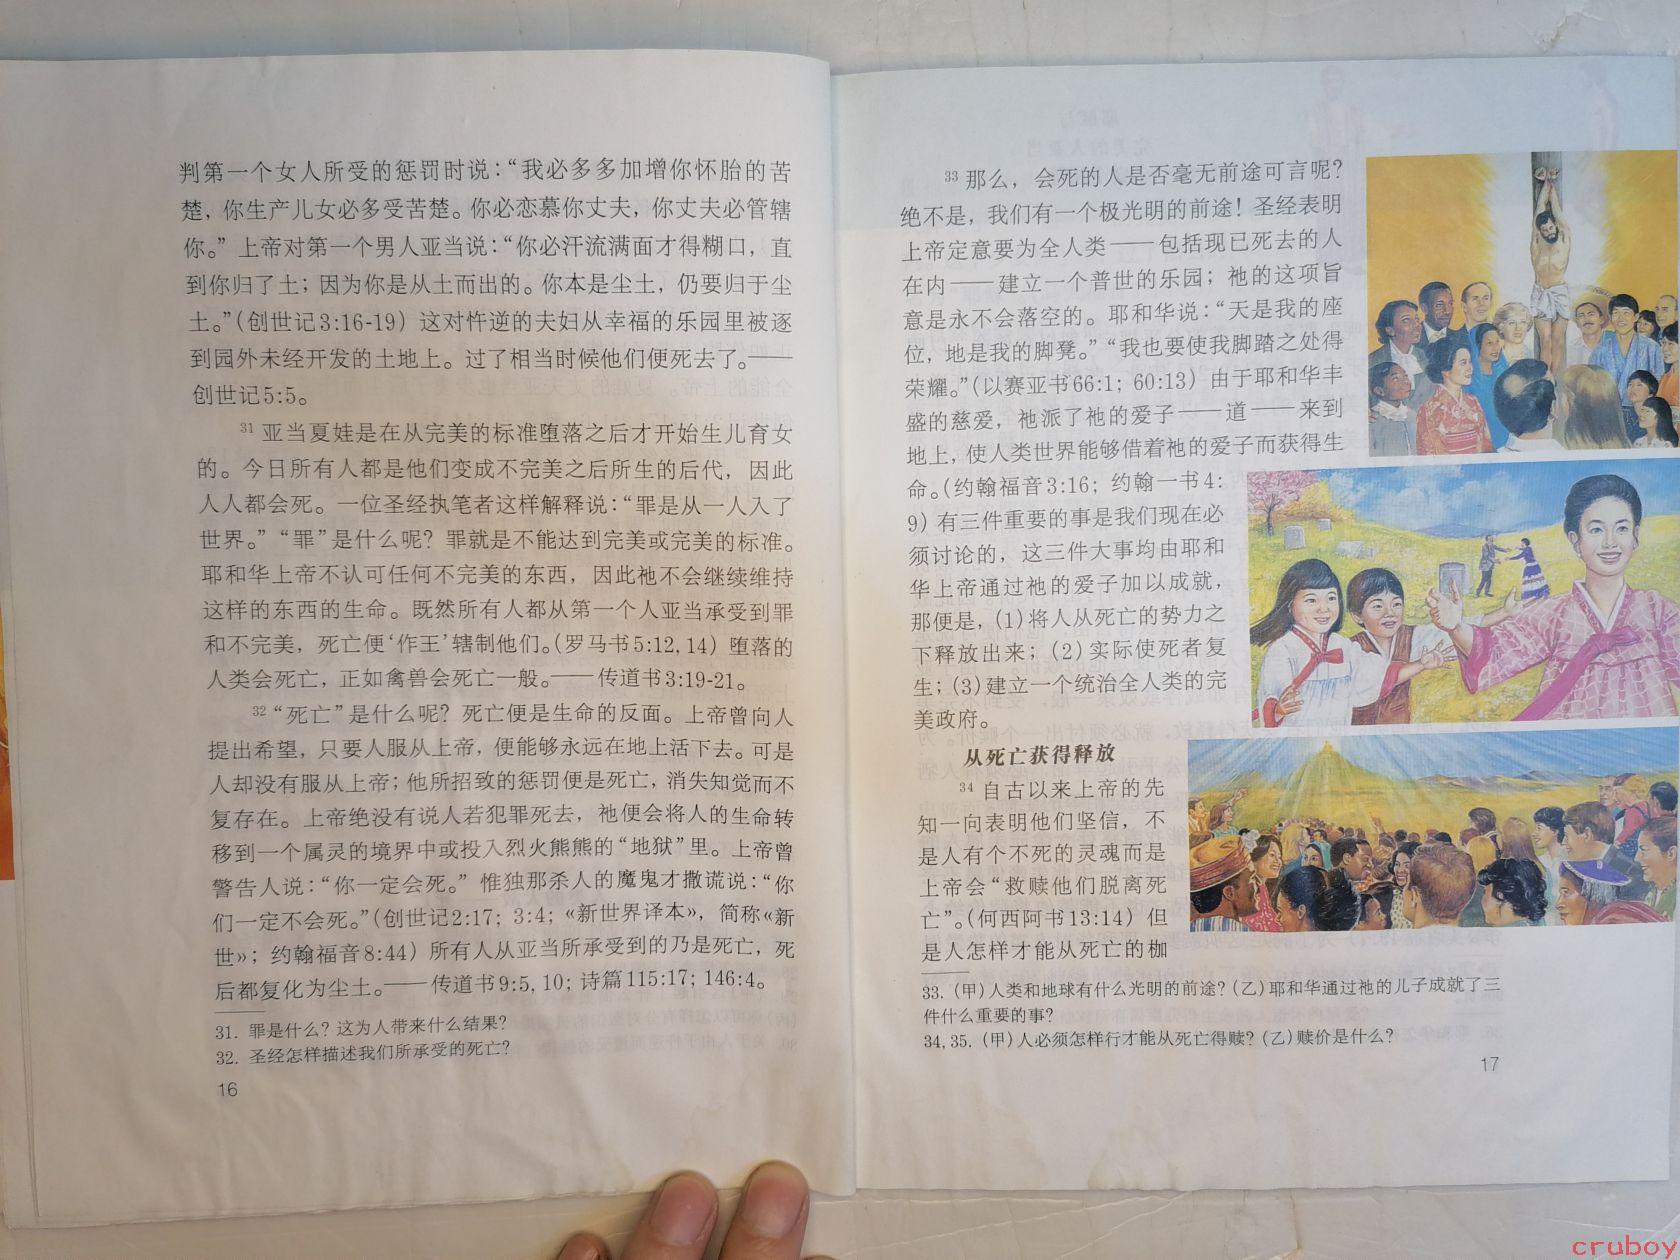 判第一个女人所受的惩罚时说：“我必多多加增你怀胎的苦
楚，你生产儿女必多受苦楚。你必恋慕你丈夫，你丈夫必管辖
你。”上帝对第一个男人亚当说：“你必汗流满面才得糊口，直
到你归了土；因为你是从土而出的。你本是尘土，仍要归于尘
土。”（创世记3:16-19）这对忤逆的夫妇从幸福的乐园里被逐
到园外未经开发的土地上。过了相当时候他们便死去了。——
创世记5:5。
31 亚当夏娃是在从完美的标准堕落之后才开始生儿育女
的。今日所有人都是他们变成不完美之后所生的后代，因此
人人都会死。一位圣经执笔者这样解释说：“罪是从一人入了
世界。”“罪”是什么呢？罪就是不能达到完美或完美的标准。
耶和华上帝不认可任何不完美的东西，因此祂不会继续维持
这样的东西的生命。既然所有人都从第一个人亚当承受到罪
和不完美，死亡便‘作王’辖制他们。（罗马书5:12,14）堕落的
人类会死亡，正如禽兽会死亡一般。——传道书3:19-21。
32 “死亡”是什么呢？死亡便是生命的反面。上帝曾向人
提出希望，只要人服从上帝，便能够永远在地上活下去。可是
人却没有服从上帝；他所招致的惩罚便是死亡，消失知觉而不
复存在。上帝绝没有说人若犯罪死去，祂便会将人的生命转
移到一个属灵的境界中或投入烈火熊熊的“地狱”里。上帝曾
警告人说：“你一定会死。”惟独那杀人的魔鬼才撒谎说：“你
们一定不会死。”（创世记2:17；3:4；《新世界译本》，简称《新
世》；约翰福音8:44）所有人从亚当所承受到的乃是死亡，死
后都复化为尘土。——传道书9:5,10；诗篇115:17；146:4。
31. 罪是什么？这为人带来什么结果？
32. 圣经怎样描述我们所承受的死亡？
16
33 那么，会死的人是否毫无前途可言呢？
绝不是，我们有一个极光明的前途！圣经表明
上帝定意要为全人类——包括现已死去的人
在内——建立一个普世的乐园；祂的这项旨
意是永不会落空的。耶和华说：“天是我的座
位，地是我的脚凳。”“我也要使我脚踏之处得
荣耀。”（以赛亚书66:1；60:13）由于耶和华丰
盛的慈爱，祂派了祂的爱子——道——来到
地上，使人类世界能够借着祂的爱子而获得生
命。（约翰福音3:16；约翰一书4:
9）有三件重要的事是我们现在必
须讨论的，这三件大事均由耶和
华上帝通过祂的爱子加以成就，
那便是，（1）将人从死亡的势力之
下释放出来；（2）实际使死者复
生；（3）建立一个统治全人类的完
美政府。
从死亡获得释放
34 自古以来上帝的先
知一向表明他们坚信，不
是人有个不死的灵魂而是
上帝会“救赎他们脱离死
亡”。（何西阿书13:14）但
是人怎样才能从死亡的枷
33.（甲）人类和地球有什么光明的前途？（乙）耶和华通过祂的儿子成就了三
件什么重要的事？
34,35.（甲）人必须怎样行才能从死亡得赎？（乙）赎价是什么？
17
cruboy